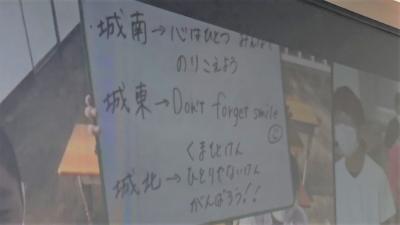 ・城南→心はひとつ みんなで
のりこえよう
城東→Don't forget smile
くまもとけん
城北→ひとりじゃないけん
がんばろう!!